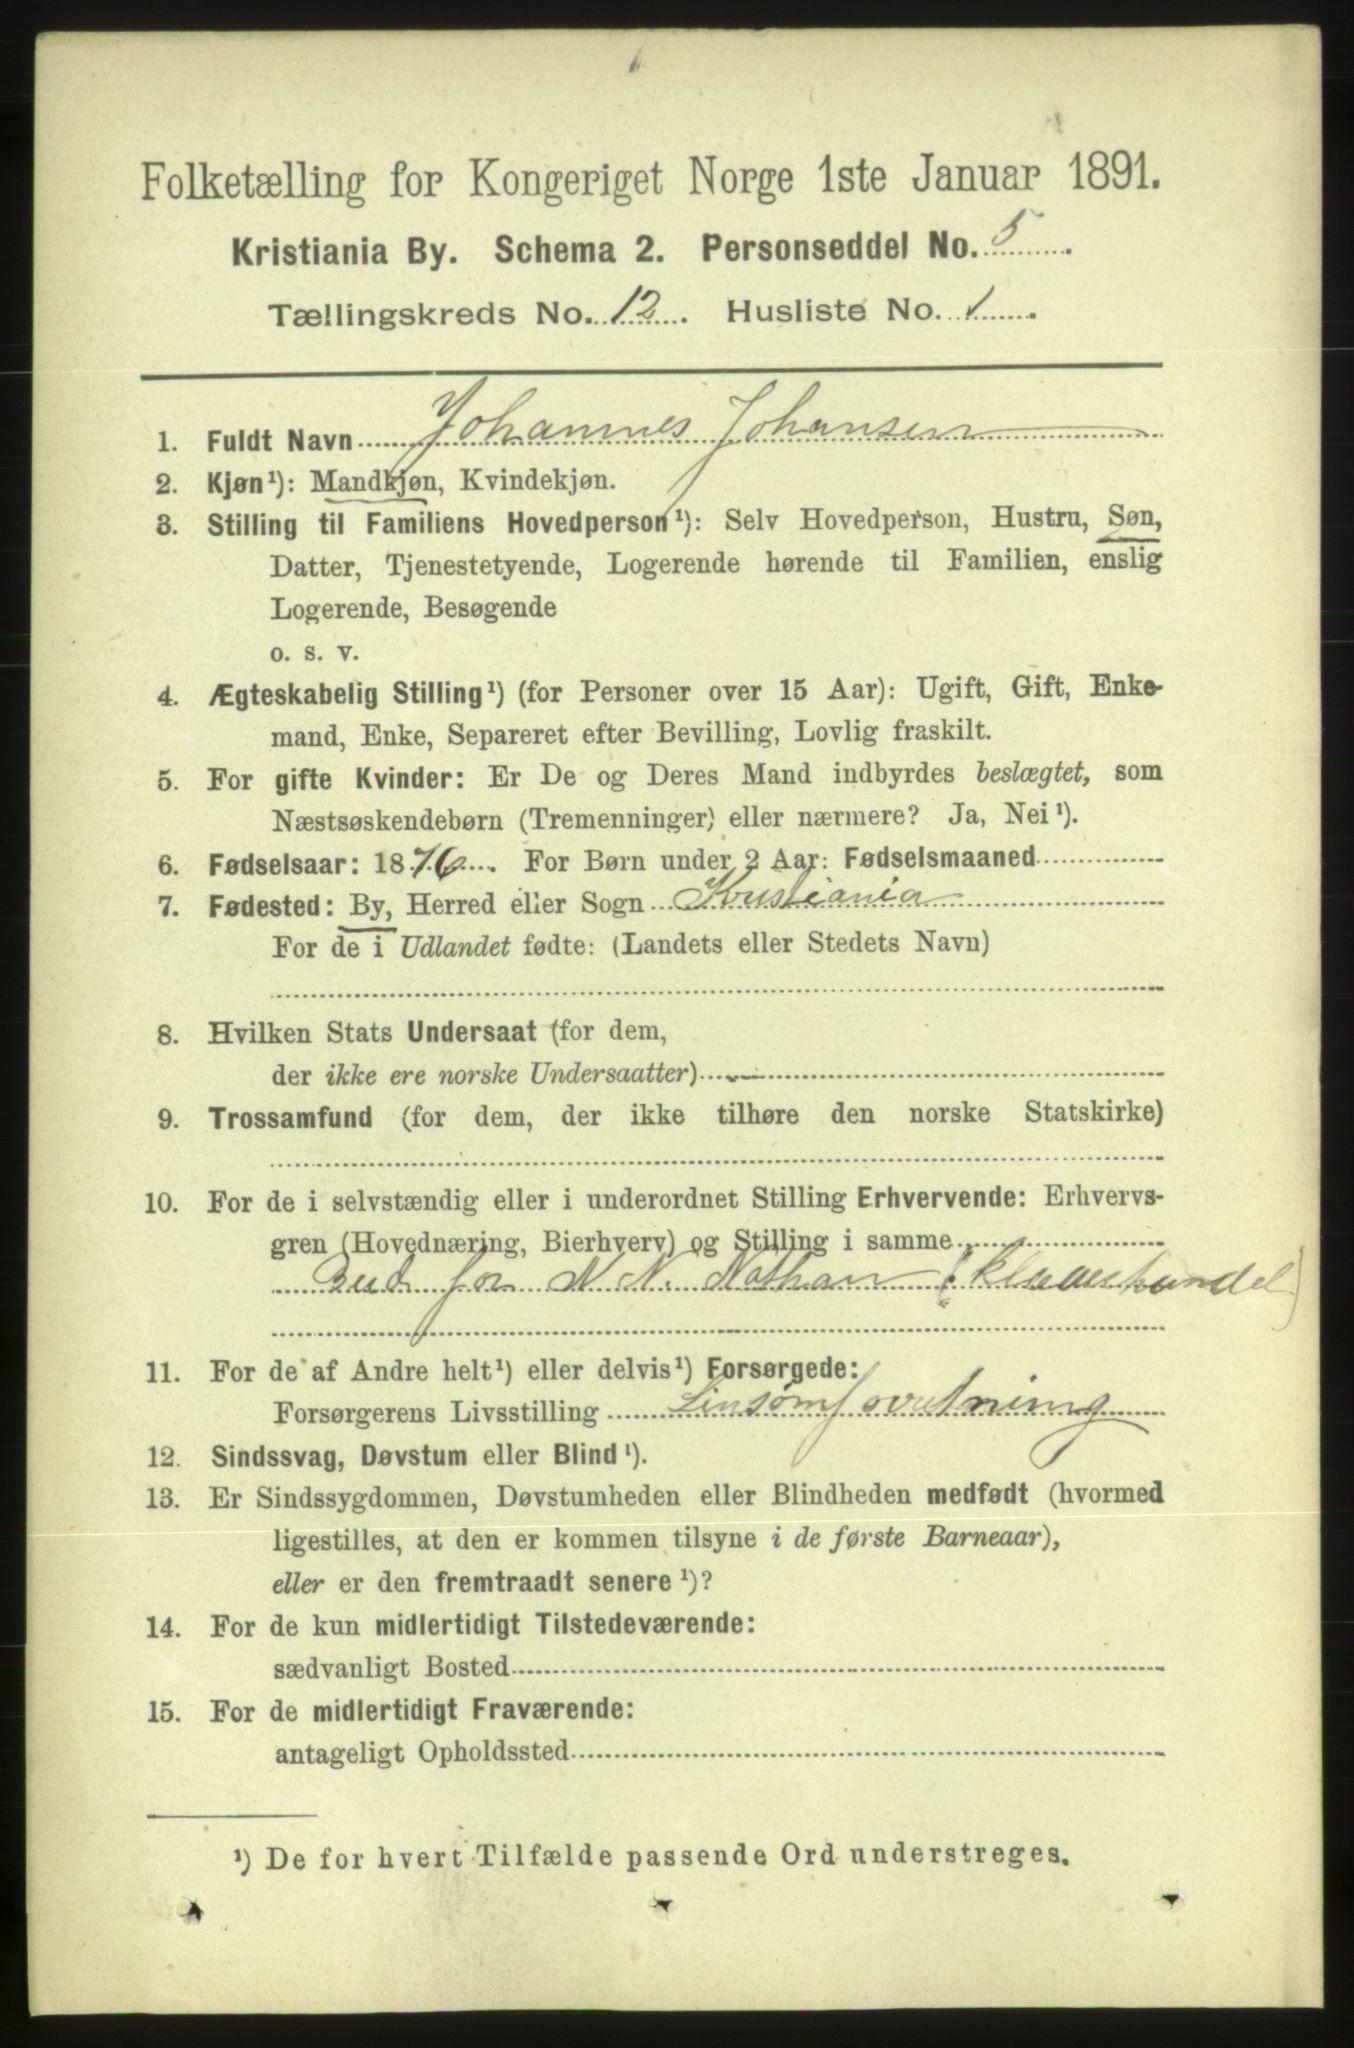 Folketælling for Kongeriget Norge 1ste Januar 1891.
Kristiania By. Schema 2. Personseddel No. 5
Tællingskreds No. 12. Husliste No. 1.
1. Fuldt Navn Johannes Johansen
2. Kjøn¹): Mandkjøn, Kvindekjøn.
3. Stilling til Familiens Hovedperson¹): Selv Hovedperson, Hustru, Søn,
Datter, Tjenestetyende, Logerende hørende til Familien, enslig
Logerende, Besøgende
o. s. v.
4. Ægteskabelig Stilling¹) (for Personer over 15 Aar): Ugift, Gift, Enke-
mand, Enke, Separeret efter Bevilling, Lovlig fraskilt.
5. For gifte Kvinder: Er De og Deres Mand indbyrdes beslægtet, som
Næstsøskendebørn (Tremenninger) eller nærmere? Ja, Nei¹).
6. Fødselsaar: 1876. For Børn under 2 Aar: Fødselsmaaned
7. Fødested: By, Herred eller Sogn Kristiania
For de i Udlandet fødte: (Landets eller Stedets Navn)
8. Hvilken Stats Undersaat (for dem,
der ikke ere norske Undersaatter)
9. Trossamfund (for dem, der ikke tilhøre den norske Statskirke)
10. For de i selvstændig eller i underordnet Stilling Erhvervende: Erhvervs-
gren (Hovednæring, Bierhverv) og Stilling i samme
Bud for N. N. Nathan
11. For de af Andre helt¹) eller delvis¹) Forsørgede:
Forsørgerens Livsstilling Linsømforretning
12. Sindssvag, Døvstum eller Blind¹).
13. Er Sindssygdommen, Døvstumheden eller Blindheden medfødt (hvormed
ligestilles, at den er kommen tilsyne i de første Barneaar),
eller er den fremtraadt senere¹)?
14. For de kun midlertidigt Tilstedeværende:
sædvanligt Bosted
15. For de midlertidigt Fraværende:
antageligt Opholdssted
¹) De for hvert Tilfælde passende Ord understreges.